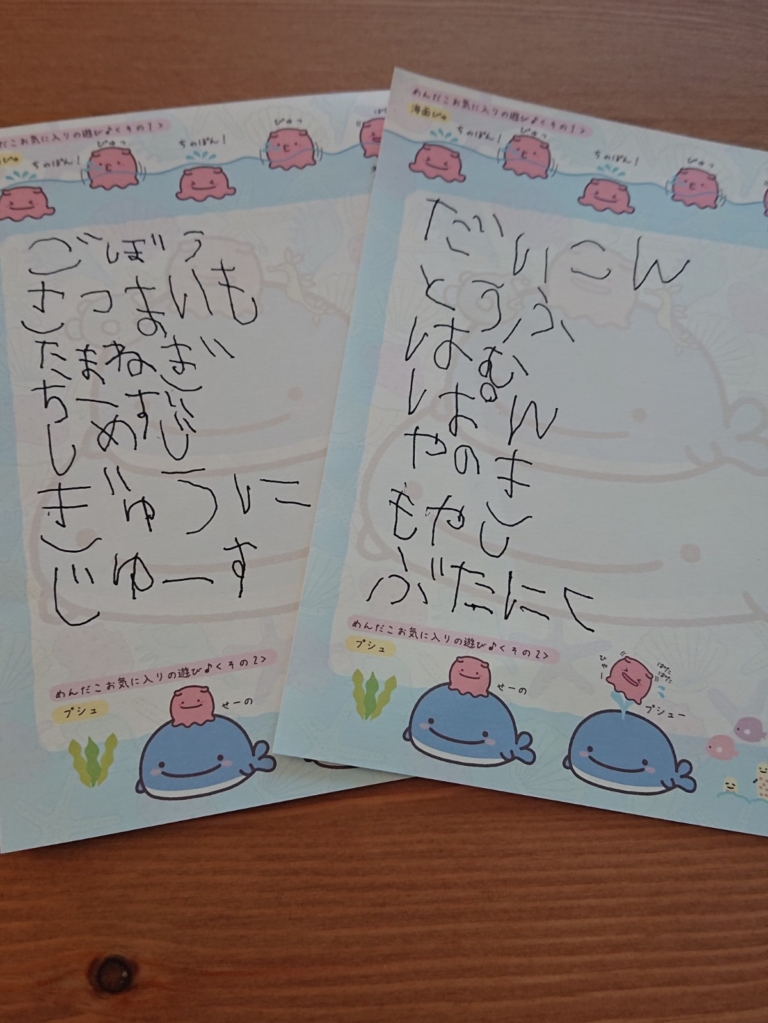 だこお気に入りの遊び♪くその1>
ちゃぽん!
びゅっ
ごぼう
さつまいも
たまねぎ
ちーず
しめじ
ぎゅうに
じゅーす
めんだこお気に入りの遊び♪くその2>
プシュ
せーの
めんだこお気に入りの遊び♪くその1>
海面ぴゅ
ちゃぽん!
びゅっ
ちゃぽん!
びゅっ
だいこん
とうふ
はむ
ぱん
やのき
もやし
ぶたにく
めんだこお気に入りの遊び♪くその2>
プシュ
せーの
ひゃー
ぱたぱた
プシュー